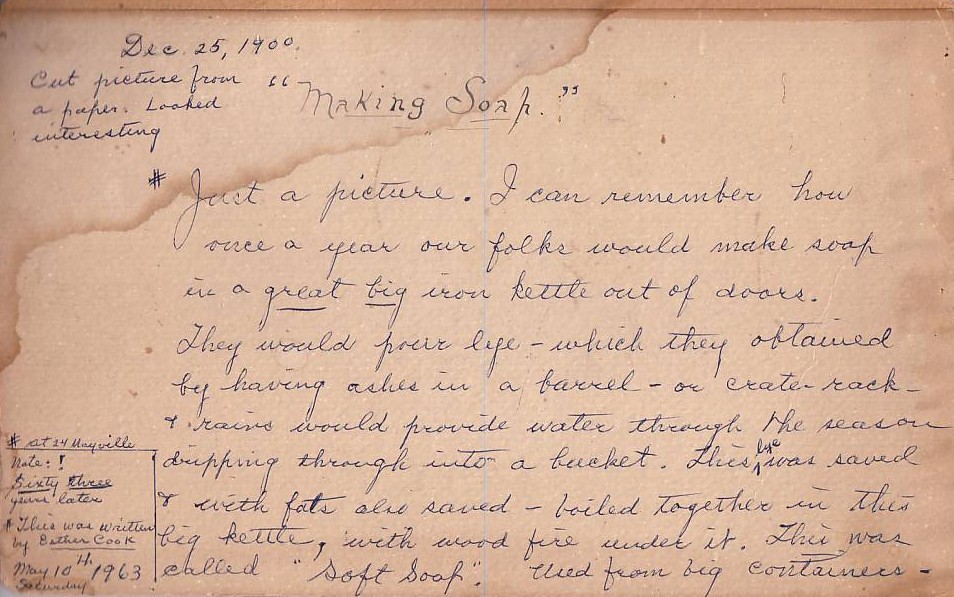 Dec. 25, 1900.
Cut picture from
a paper. Looked
interesting
"Making Soap."
# Just a picture. I can remember how
once a year our folks would make soap
in a great big iron kettle out of doors.
They would pour lye - which they obtained
by having ashes in a barrel - or crate-rack -
& rains would provide water through the season
dripping through into a bucket. This lye was saved
& with fats also saved - boiled together in this
big kettle, with wood fire under it. This was
called "Soft Soap". Used from big containers -
# at 24 Mayville
Note: !
Sixty three
years later
# This was written
by Esther Cook
May 10th 1963
Saturday